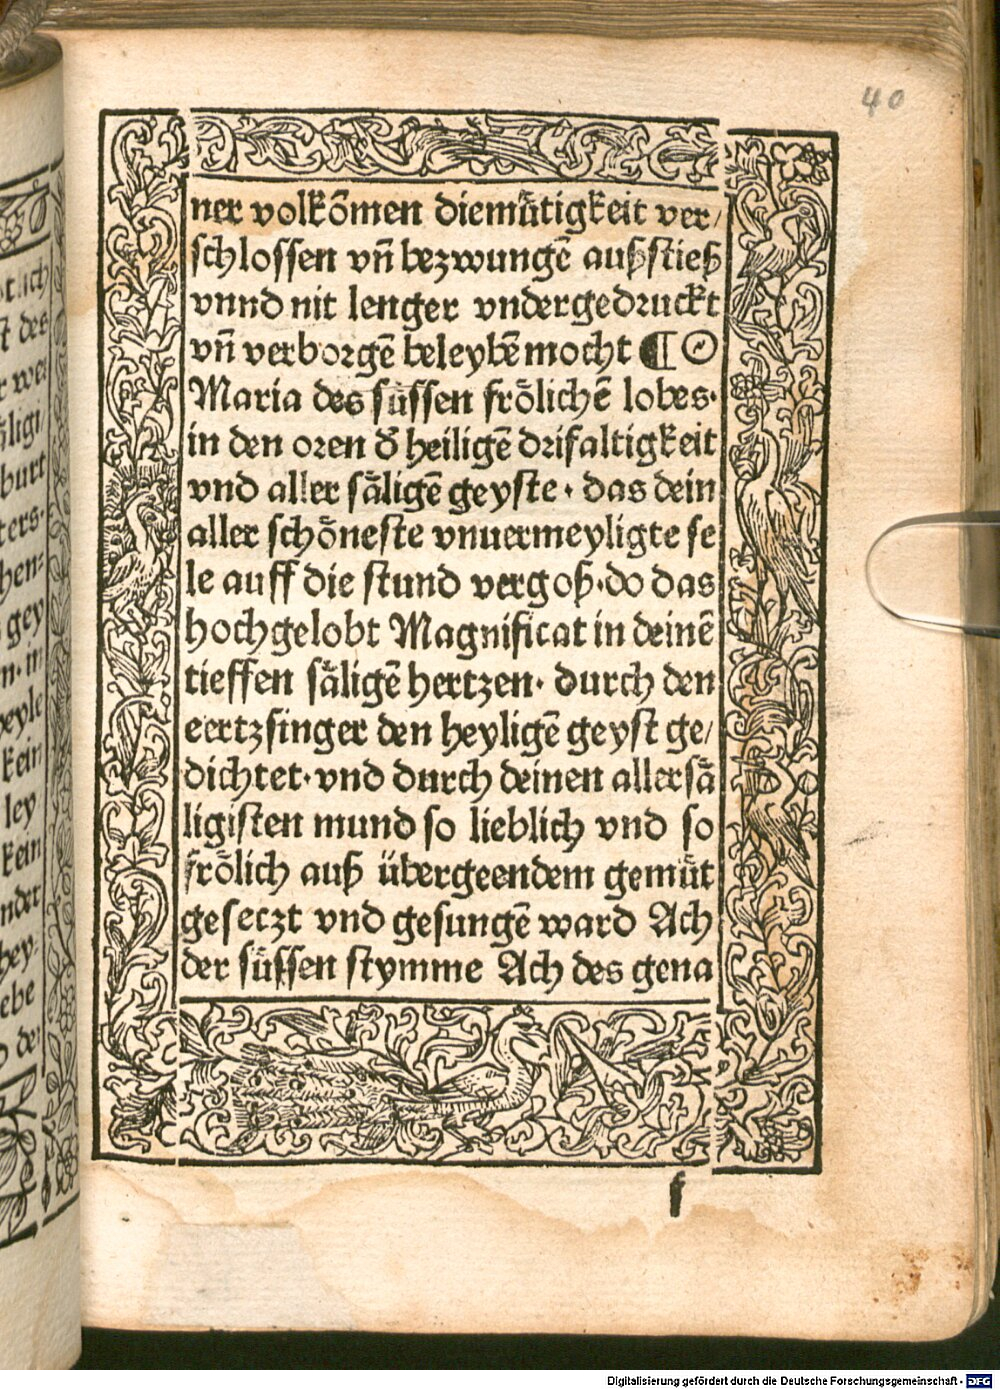 40
ner volkõmen diemuͤtigkeit ver/
schlossen vñ bezwungẽ außstieß
vnnd nit lenger vndergedruckt
vñ verborgẽ beleybẽ mocht ¶ O
Maria des suͤssen froͤlichẽ lobes·
in den oren d̓ heiligẽ drifaltigkeit
vnd aller saͤligẽ geyste · das dein
aller schoͤneste vnuermeyligte se
le auff die stund vergoß·do das
hochgelobt Magnificat in deinẽ
tieffen saͤligẽ hertzen· durch den
eertzsinger den heyligẽ geyst ge/
dichtet·vnd durch deinen allersaͤ
ligisten mund so lieblich vnd so
froͤlich auß übergeendem gemuͤt
gesetzt vnd gesungẽ ward Ach
der suͤssen stymme Ach des gena
f
Digitalisierung gefördert durch die Deutsche Forschungsgemeinschaft - DFG